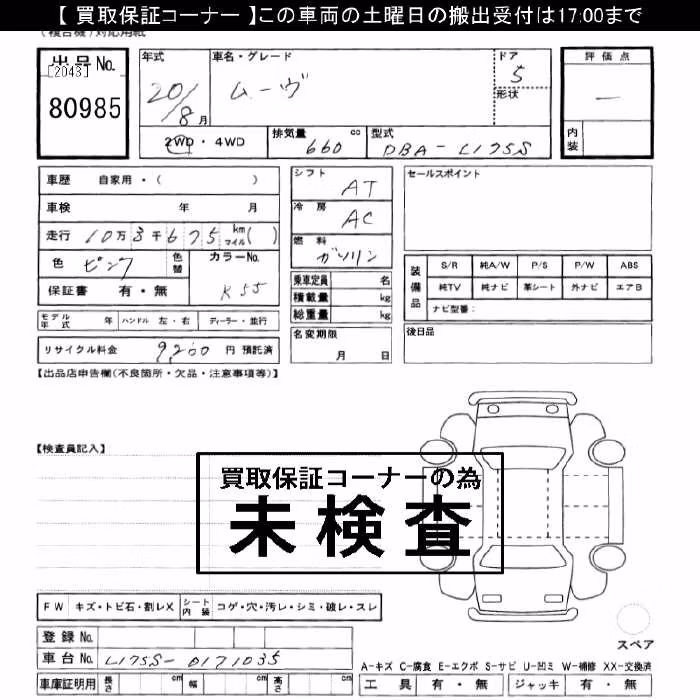 【 買取保証コーナー 】この車両の土曜日の搬出受付は17:00まで
(複合機)対応用紙
出品No.
[2043]
80985
年式
20/8月
車名・グレード
ムーヴ
ドア
5
形状
評価点
—
内装
2WD・4WD
排気量 660 cc
型式 DBA-L175S
車歴 自家用・( )
車検 年 月
走行 10万3千675 km マイル( )
色 ピンク
色替
カラーNo.
K55
保証書 有・無
シフト AT
冷房 AC
燃料 ガソリン
乗車定員 名
積載量 kg
総重量 kg
セールスポイント
装備品
S/R 純A/W P/S P/W ABS
純TV 純ナビ 革シート 外ナビ エアB
ナビ型番:
モデル年式 年 ハンドル 左・右 ディーラー・並行
名変期限
月 日
後日品
リサイクル料金 9,200 円 預託済
【出品店申告欄(不良箇所・欠品・注意事項等)】
【検査員記入】
買取保証コーナーの為
未検査
FW キズ・トビ石・割レX シート内装 コゲ・穴・汚レ・シミ・破レ・スレ
スペア
登録No.
車台No. L175S-0171035
A-キズ C-腐食 E-エクボ S-サビ U-凹ミ W-補修 XX-交換済
車庫証明用 長さ cm 幅 cm 高さ cm
工具 有・無 ジャッキ 有・無